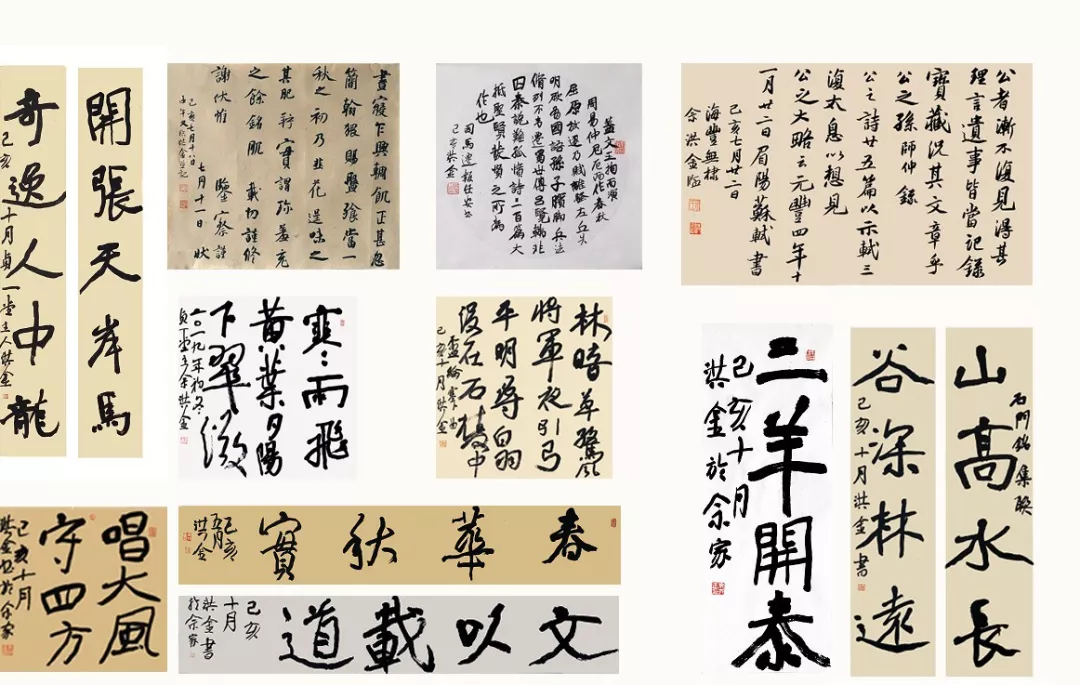 開張天岸馬
奇逸人中龍
己亥十月貞一堂主人洪金
晝寢乍興輖飢正甚忽
簡翰猥賜盤飧當一
秋之初乃韭花逞味之
其肥羜實謂珍羞充
之餘銘肌載切謹修
謝伏惟鑒察謹
七月十一日狀
己亥七月十八日
蓋文王拘而演
周易仲尼厄而作春秋
屈原放逐乃賦離騷左丘失
明厥有國語孫子臏腳兵法
脩列不韋遷蜀世傳呂覽韓非
囚秦說難孤憤詩三百篇大
抵聖賢發憤之所為
作也
司馬遷報任安書
己亥洪金
公者漸不復見得其
理言遺事皆當記錄
寶藏況其文章乎
公之孫師仲錄
公之詩廿五篇以示軾三
復太息以想見
公之大略云元豐四年十
一月廿二日眉陽蘇軾書
己亥七月廿二日
海豐無棣
余洪金臨
寒〻雨飛
黃葉夕陽
下翠微
二〇一九年初冬
貞一堂主余洪金
林暗草驚風
將軍夜引弓
平明尋白羽
沒在石棱中
盧綸塞下曲
己亥十月洪金
三羊開泰
己亥十月
洪金於余家
山高水長
石門銘集聯
谷深林遠
己亥十月洪金書
唱大風
守四方
己亥十月
洪金書於余家
春華秋實
己亥
五月
洪金
文以載道
己亥
十月
洪金書
於余家